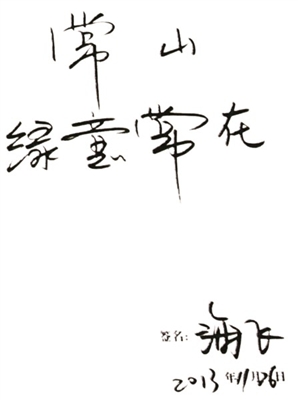 常山
绿意常在
签名：海飞
2013年11月26日